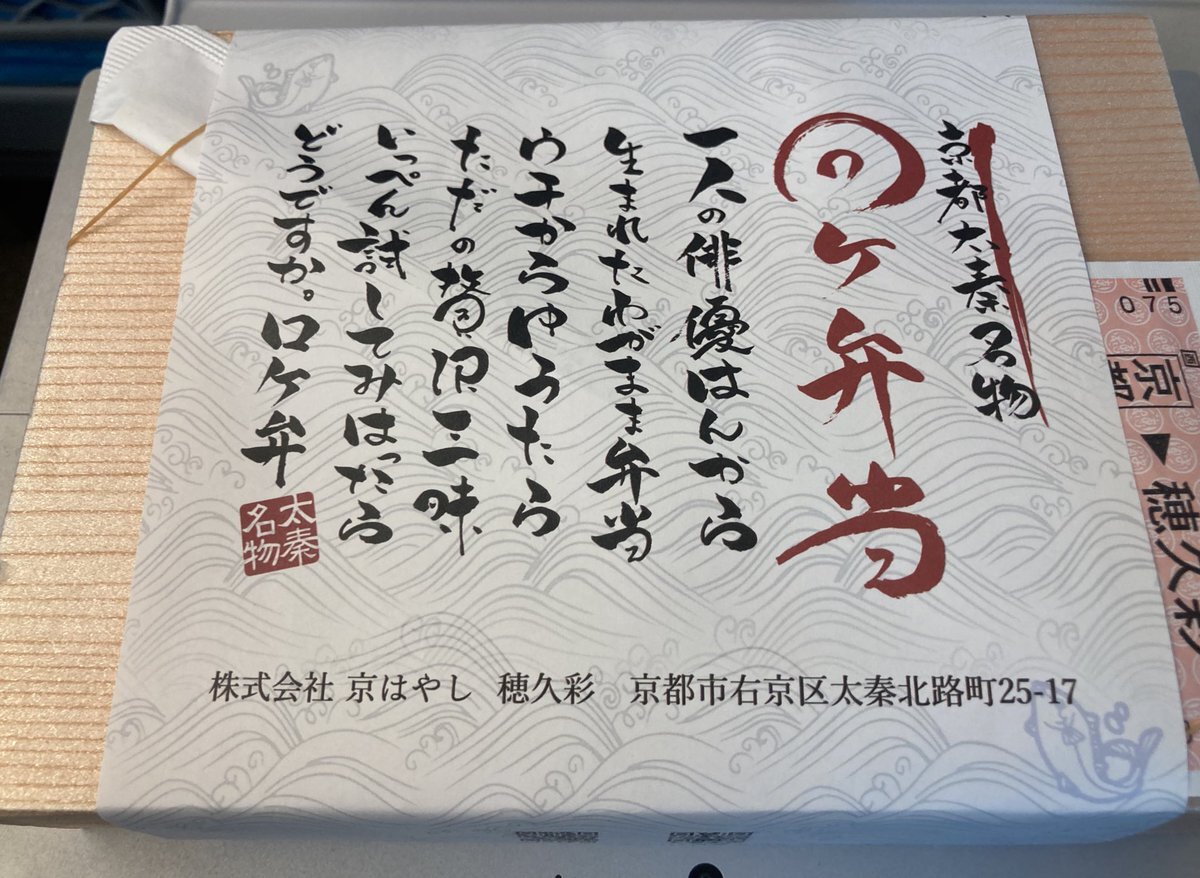 京都太秦名物
ロケ弁当
一人の俳優はんから
生まれたわがまま弁当
ウチからゆうたら
ただの贅沢三昧
いっぺん試してみはったら
どうですか。ロケ弁
太秦
名物
株式会社 京はやし 穂久彩 京都市右京区太秦北路町25-17
075
穂久彩